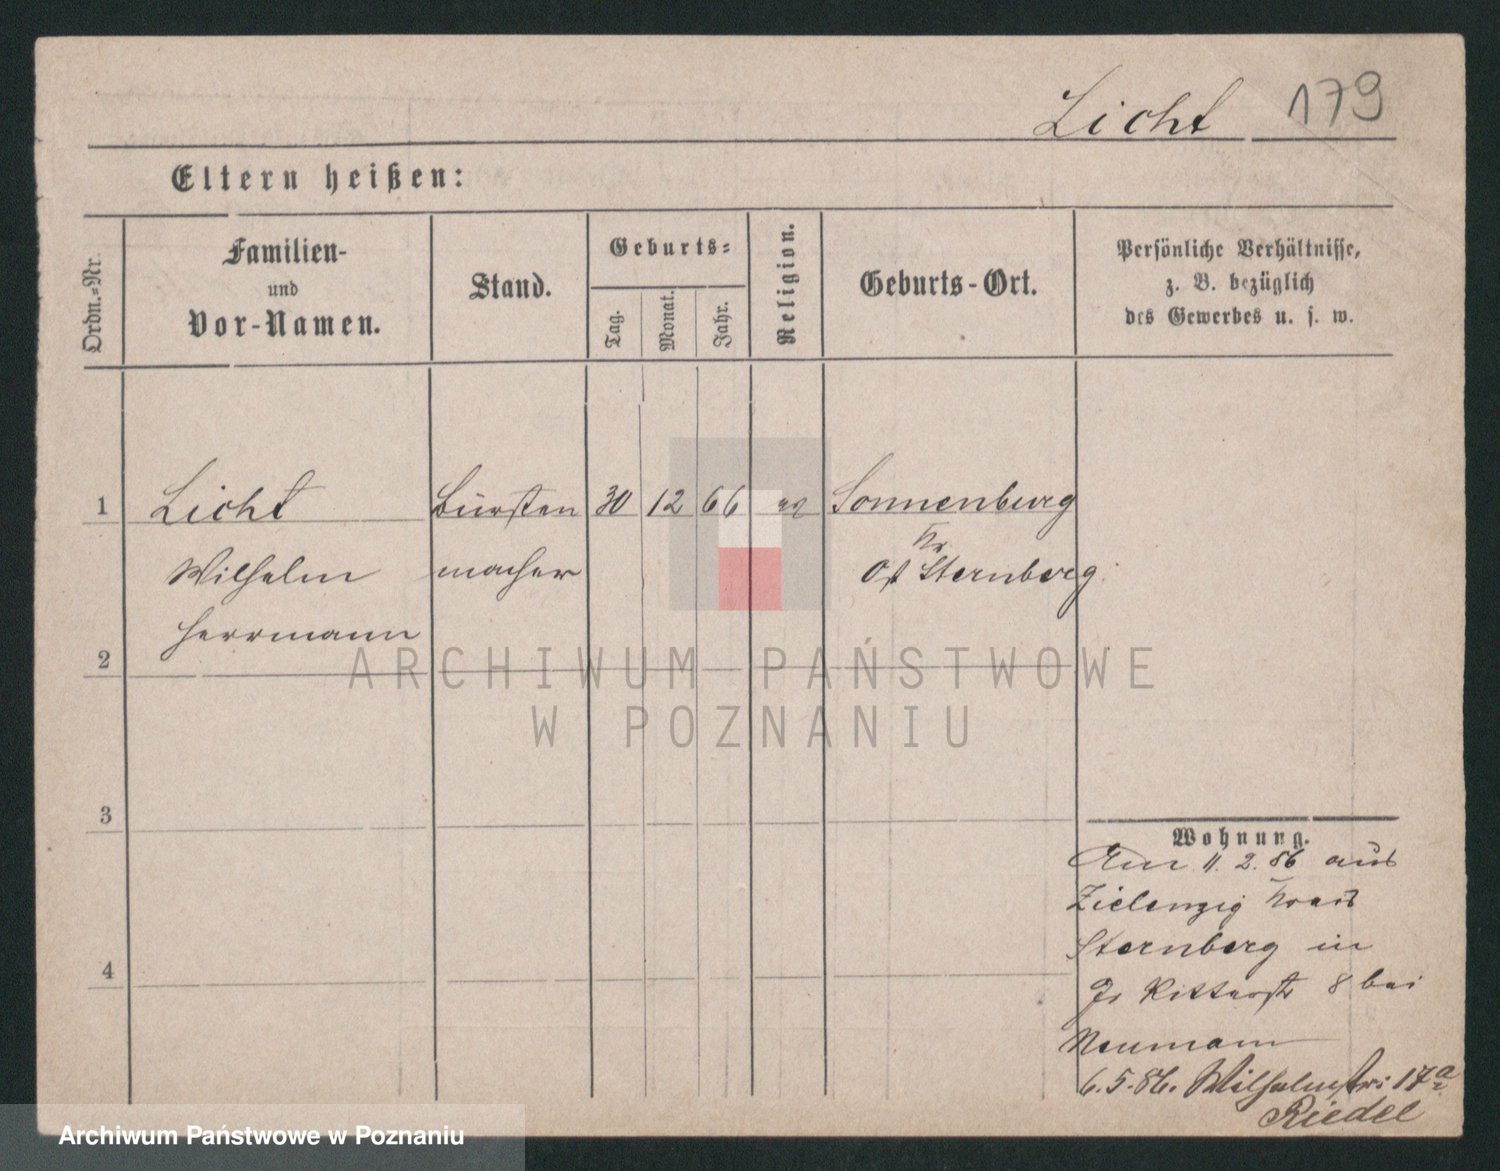 Licht 179
Eltern heißen:
Ordn.-Nr.
Familien-
und
Vor-Namen.
Stand.
Geburts-
Tag.
Monat.
Jahr.
Religion.
Geburts-Ort.
Persönliche Verhältnisse,
z. B. bezüglich
des Gewerbes u. s. w.
1 Licht Bürsten 30 12 66 ev Sonnenburg
Wilhelm macher Kr
Ost Sternberg.
Herrmann
2
3
4
Wohnung.
Am 11. 2. 86 aus
Zielenzig Kreis
Sternberg in
Ritterstr 8 bei
Neumann
6. 5. 86. Wilhelmstr: 17a
Riedel
ARCHIWUM PAŃSTWOWE
W POZNANIU
Archiwum Państwowe w Poznaniu